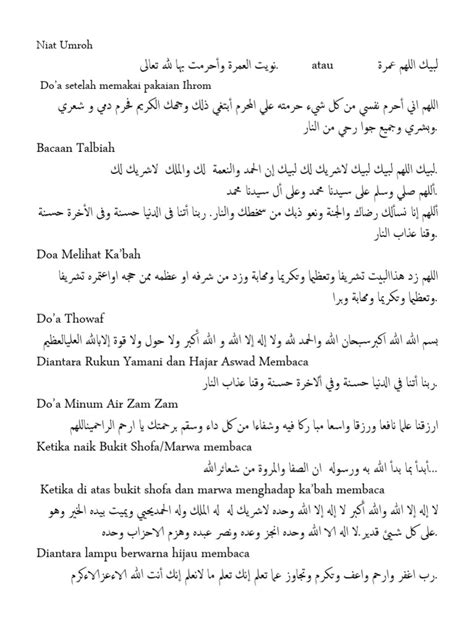 Niat Umroh
لبيك اللهم عمرة atau نويت العمرة وأحرمت بها لله تعالى.
Do’a setelah memakai pakaian Ihrom
اللهم اني أحرم نفسي من كل شيء حرمته علي المحرم أبتغي ذلك وجهك الكريم فحرم دمي و شعري
وبشري وجميع جوا رحي من النار.
Bacaan Talbiah
لبيك اللهم لبيك لبيك لاشريك لك لبيك إن الحمد والنعمة لك والملك لاشريك لك.
أللهم صلي وسلم على سيدنا محمد وعلى أل سيدنا محمد
أللهم إنا نسألك رضاك والجنة ونعو ذبك من سخطك والنار. ربنا أتنا فى الدنيا حسنة وفى الأخرة حسنة
وقنا عذاب النار.
Doa Melihat Ka’bah
اللهم زد هذاالبيت تشريفا وتعظيما وتكريما ومهابة وزد من شرفه او عظمه ممن حجه اواعتمره تشريفا
وتعظيما وتكريما ومهابة وبرا.
Do’a Thowaf
بسم الله الله اكبرسبحان الله والحمد لله ولا إله إلا الله و الله أكبر ولا حول ولا قوة إلابالله العليالعظيم
Diantara Rukun Yamani dan Hajar Aswad Membaca
ربنا أتنا في الدنيا حسنة وفي ألاخرة حسنة وقنا عذاب النار.
Do’a Minum Air Zam Zam
ارزقنا علما نافعا ورزقا واسعا مبا ركا فيه وشفاءا من كل داء وسقم برحمتك يا ارحم الراحميناللهم
Ketika naik Bukit Shofa/Marwa membaca
أبدأ بما بدأ الله به ورسوله ان الصفا والمروة من شعائرالله...
Ketika di atas bukit shofa dan marwa menghadap ka’bah membaca
لا إله إلا الله والله أكبر لا إله إلا الله وحده لاشريك له له الملك وله الحمديحيي ويميت بيده الخير وهو
على كل شيئ قدير.لا اله الا الله وحده انجز وعده ونصر عبده وهزم الاحزاب وحده.
Diantara lampu berwarna hijau membaca
رب اغفر وارحم واعف وتكرم وتجاوز عما تعلم إنك تعلم ما لانعلم إنك أنت الله الاعزالاكرم.